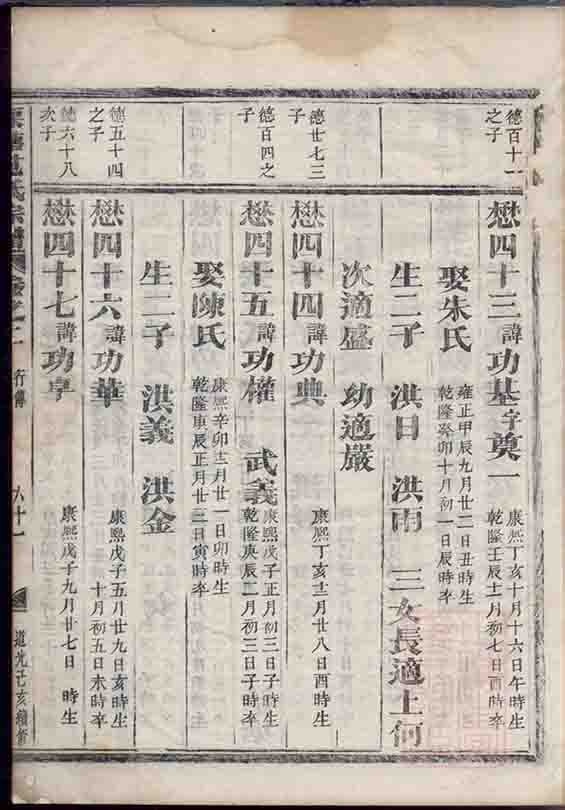 德百十一
之子
懋四十三諱功基字奠一
康熙丁亥十月十六日午時生
乾隆壬辰十一月初七日酉時卒
娶朱氏
雍正甲辰九月廿二日丑時生
乾隆癸卯十月初一日辰時卒
生二子 洪日 洪雨 三女長適上何
次適盛 幼適嚴
德廿七三
子
懋四十四諱功典
康熙丁亥十二月廿八日酉時生
德百四之
子
懋四十五諱功權 武義
康熙戊子正月初三日子時生
乾隆庚辰二月初三日子時卒
娶陳氏
康熙辛卯十二月廿一日卯時生
乾隆庚辰正月廿三日寅時卒
生二子 洪義 洪金
德五十四
之子
懋四十六諱功華
康熙戊子五月廿九日亥時生
十月初五日未時卒
德六十八
次子
懋四十七諱功亨
康熙戊子九月廿七日 時生
氏宗譜 卷之二 行傳 六十一 道光己亥續脩